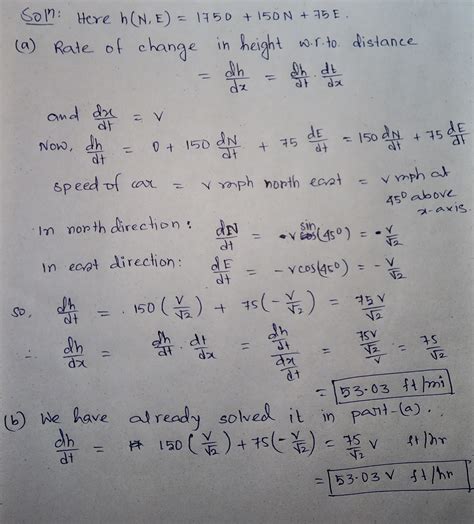 Solⁿ: Here h(N, E) = 1750 + 150N + 75E.
(a) Rate of change in height w.r.to distance
= dh/dx = dh/dt · dt/dx
and dx/dt = v
Now, dh/dt = 0 + 150 dN/dt + 75 dE/dt = 150 dN/dt + 75 dE/dt
speed of car = v mph north east = v mph at 45° above x-axis.
In north direction: dN/dt = -v sin(45°) = v/√2
In east direction: dE/dt = -v cos(45°) = -v/√2
So, dh/dt = 150(v/√2) + 75(-v/√2) = 75v/√2
∴ dh/dx = dh/dt · dt/dx = (dh/dt)/(dx/dt) = (75v/√2)/v = 75/√2
= 53.03 ft/mi
(b) We have already solved it in part-(a).
dh/dt = 150(v/√2) + 75(-v/√2) = 75/√2 v ft/hr
= 53.03 v ft/hr